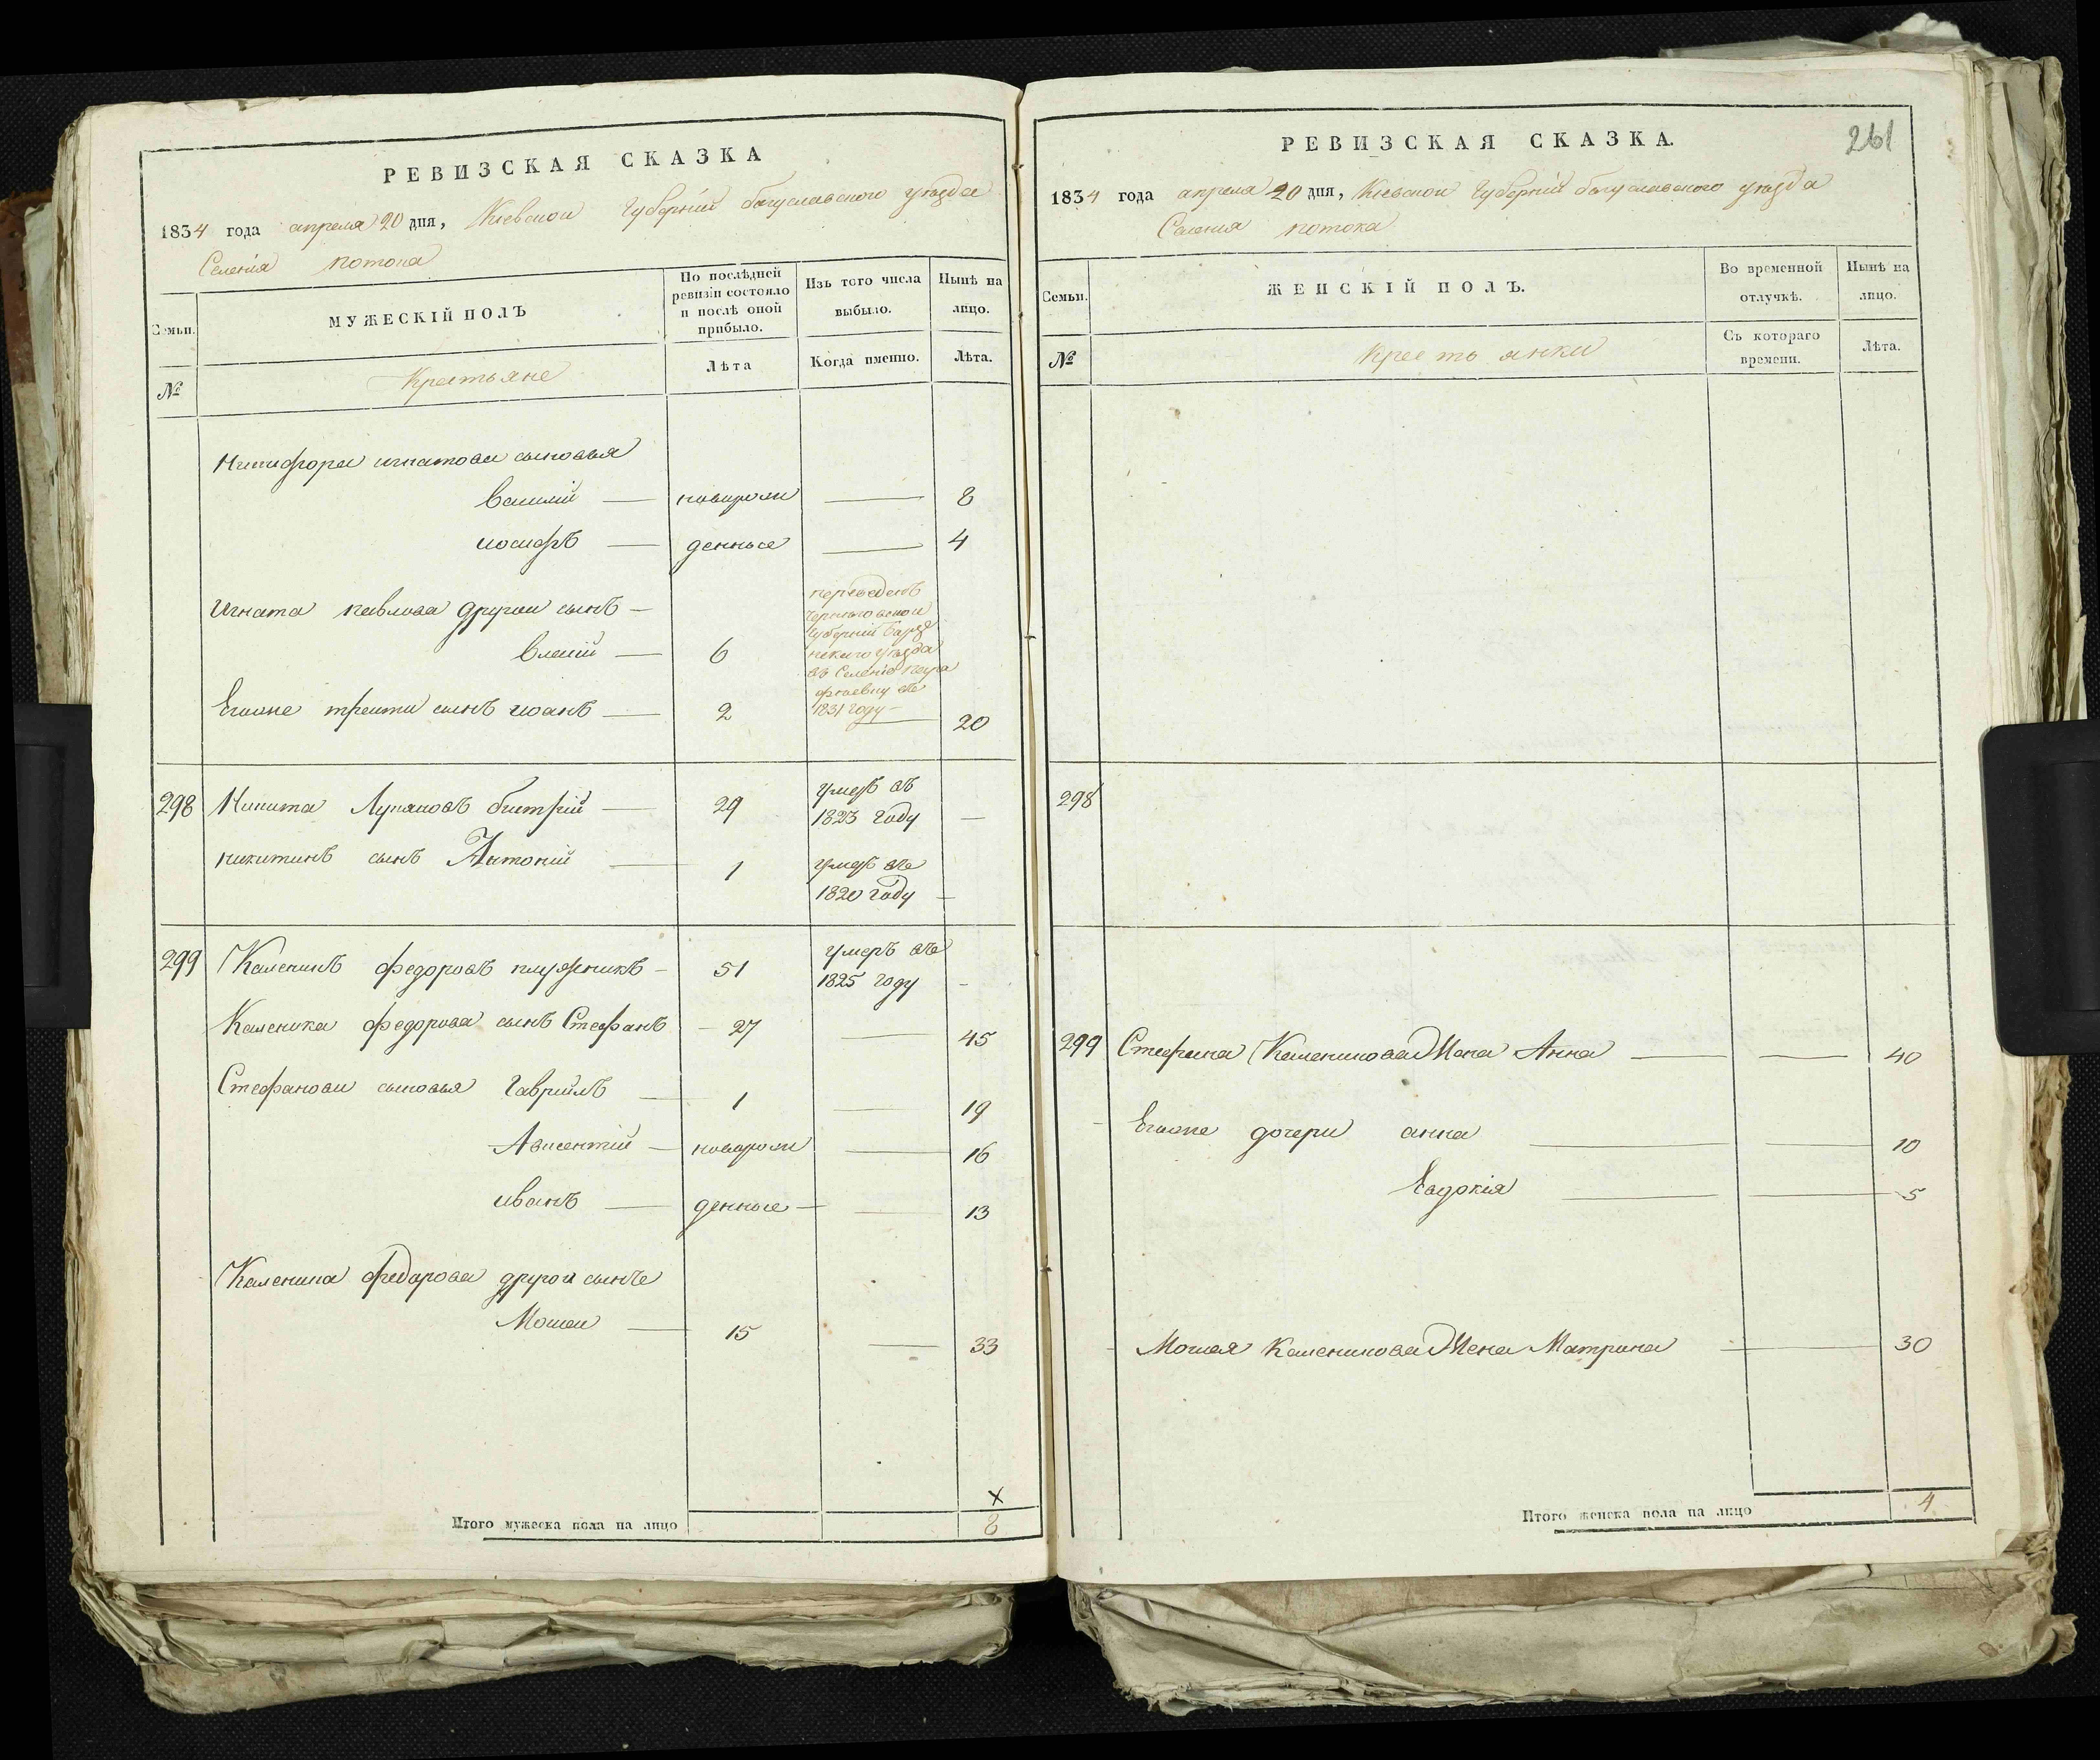 РЕВИЗСКАЯ СКАЗКА
1834 года апреля 20 дня, Киевской Губерніи богуславского уезда
Селенія потока
Семьи.
МУЖЕСКІЙ ПОЛЪ
По послѣдней
ревизіи состояло
и послѣ оной
прибыло.
Изъ того числа
выбыло.
Нынѣ на
лицо.
№
Крестьяне
Лѣта
Когда именно.
Лѣта.
Никифора игнатова сыновья
Василій — новорож — 8
иосифъ — денные — 4
Игната павлова другой сынъ —
Власій — 6
переведенъ
Черниговской
Губерніи
уезда
въ Селеніе
въ
1831 году —
Егоже третій сынъ иоанъ — 2 20
298 Никита Лупановъ — 29 умеръ въ
1823 году —
никитинъ сынъ Антоній — 1 умеръ въ
1820 году —
299 Каленикъ федоровъ — 51 умеръ въ
1825 году -
Каленика федорова сынъ Стефанъ - 27 — 45
Стефанови сыновья Гаврыилъ — 1 — 19
Авксентій — новорож — 16
иванъ — денные — 13
Каленика федорова другой сынъ
Мойсей — 15 — 33
Итого мужеска пола на лицо
х
8
РЕВИЗСКАЯ СКАЗКА.
261
1834 года апреля 20 дня, Киевской Губерніи богуславского уезда
Селенія потока
Семьи.
ЖЕНСКІЙ ПОЛЪ.
Во временной
отлучкѣ.
Нынѣ на
лицо.
№
Крестьянки
Съ котораго
времени.
Лѣта.
298
299 Стефана Каленикова Жена Анна — — 40
Егоже дочери анна — — 10
Евдокія — — 5
Мойсея Каленикова Жена Матрина — 30
Итого женска пола на лицо 4